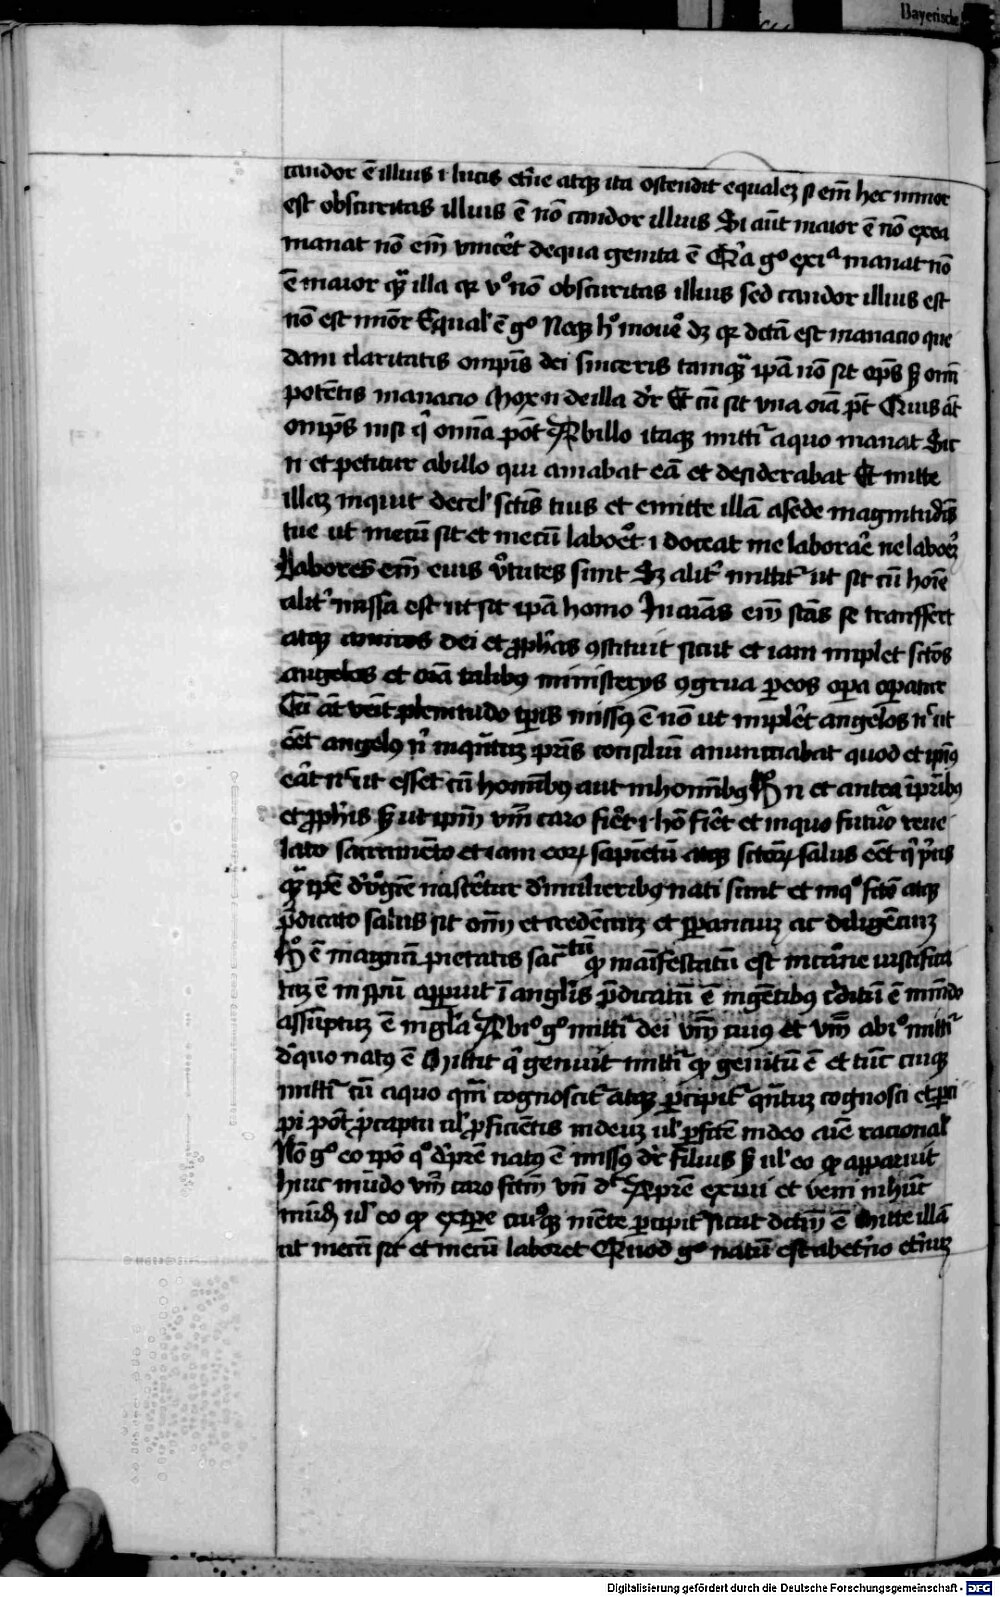 Bayerische
candor ē illius i lucis et̄ne atqꝫ ita ostendit equaleꝫ si em̄ hec minor
est obscuritas illius ē nō candor illius Si aūt maior ē nō ex ea
manat nō em̄ vincēt de qua genita ē Q̄a gº ex iª manat nō
ē maior qᷓ illa qꝛ vº nō obscuritas illius sed candor illius est
nō est minor Equal' ē gº Neqꝫ hº mouē dꝫ qꝛ dc̄tā est manacio que
dam claritatis omp̄is dei sinceris tamqᷓ ip̄a nō sit op̄s sꝫ om̄i
potētis manacio Mox n de illa dr̄ Et cū sit vna oīa pōt Quis āt
omp̄s nisi qͥ omnia pōt Ab illo itaqꝫ mittiͬ a quo manat Sic
n et petitur ab illo qui amabat eā et desiderabat Et mitte
illaꝫ inquit de cel' sctīs tuis et emitte illā a sede magnitudīs
tue ut mecū sit et mecū laboēt i doceat me laborare ne laboreꝫ
Labores em̄ eius v̄tutes sunt Sꝫ alitͬ mittitͬ ut sit cū hoīe
alitͬ missa est ut sit ip̄a homo In aīas em̄ sctās se transfert
atqꝫ amicos dei et ꝓph̄as ꝯstituit sicut et iam implet sctōs
angelos et oīa talibꝰ ministerijs ꝯgrua ꝑ eos oꝑa oꝑatur
Cū āt vēit plenitudo tp̄is missꝰ ē nō ut implet angelos nͨ ut
eēt angelꝰ nͥ inqn̄tuꝫ pr̄is consiliū anunciabat quod et ip̄iꝰ
erāt nͨ ut esset cū hominibꝰ aut in hominibꝰ Hº n et antea ī pr̄ibꝰ
et ꝓph̄is sꝫ ut ip̄m v̄bm caro fiēt i hō fiēt et in quo futūo reue
lato sacramēto et iam eoꝝ sapiētū atqꝫ sctōꝝ salus eēt qͥ pͥus
qᷓ ip̄e d' v̄gīe nascētur d' mulieribꝰ nati sunt et in qº fcō atqꝫ
p̄dicato salus sit om̄ı et credēciuꝫ et speranciuꝫ ac diligēciuꝫ
Hº ē magnū pietatis sacͬtū qꝫ māifestatū est in carne iustifica
tuꝫ ē in sp̄ū apparuit ī angl'is p̄dicatū ē in gētibꝰ cditū ē mūdo
assūptuꝫ ē in gl'a Ab iº gº mittiͬ dei v̄bm cuiꝰ et v̄bm ab iº mittiͬ
d' quo natꝰ ē Mittit qͥ genuit mittiͬ qꝫ genitū ē et tūc cuiqꝫ
mittiͬ cū a quoqm̄ cognoscitͬ atqꝫ ꝑcipitͬ qn̄tuꝫ cognosci et ꝑci
pi pōt ꝓ captu ul' ꝓficiētis in deuꝫ ul' ꝑfctē in deo aīe racional'
Nō gº eo ipō qº d' pr̄e natꝰ ē missꝰ dr̄ filius sꝫ ul' eo qꝫ apparuit
huic mūdo v̄bm caro fctm̄ vn̄ dͭ A pr̄e exiui et veni in hūc
mūdꝫ ul' eo qꝫ ex tp̄e cuiꝰqꝫ mēte ꝑcipitͬ sicut dctm̄ ē Mitte illā
ut mecū sit et mecū laboret Quod gº natū est ab et̄no et̄nuꝫ
Digitalisierung gefördert durch die Deutsche Forschungsgemeinschaft - DFG